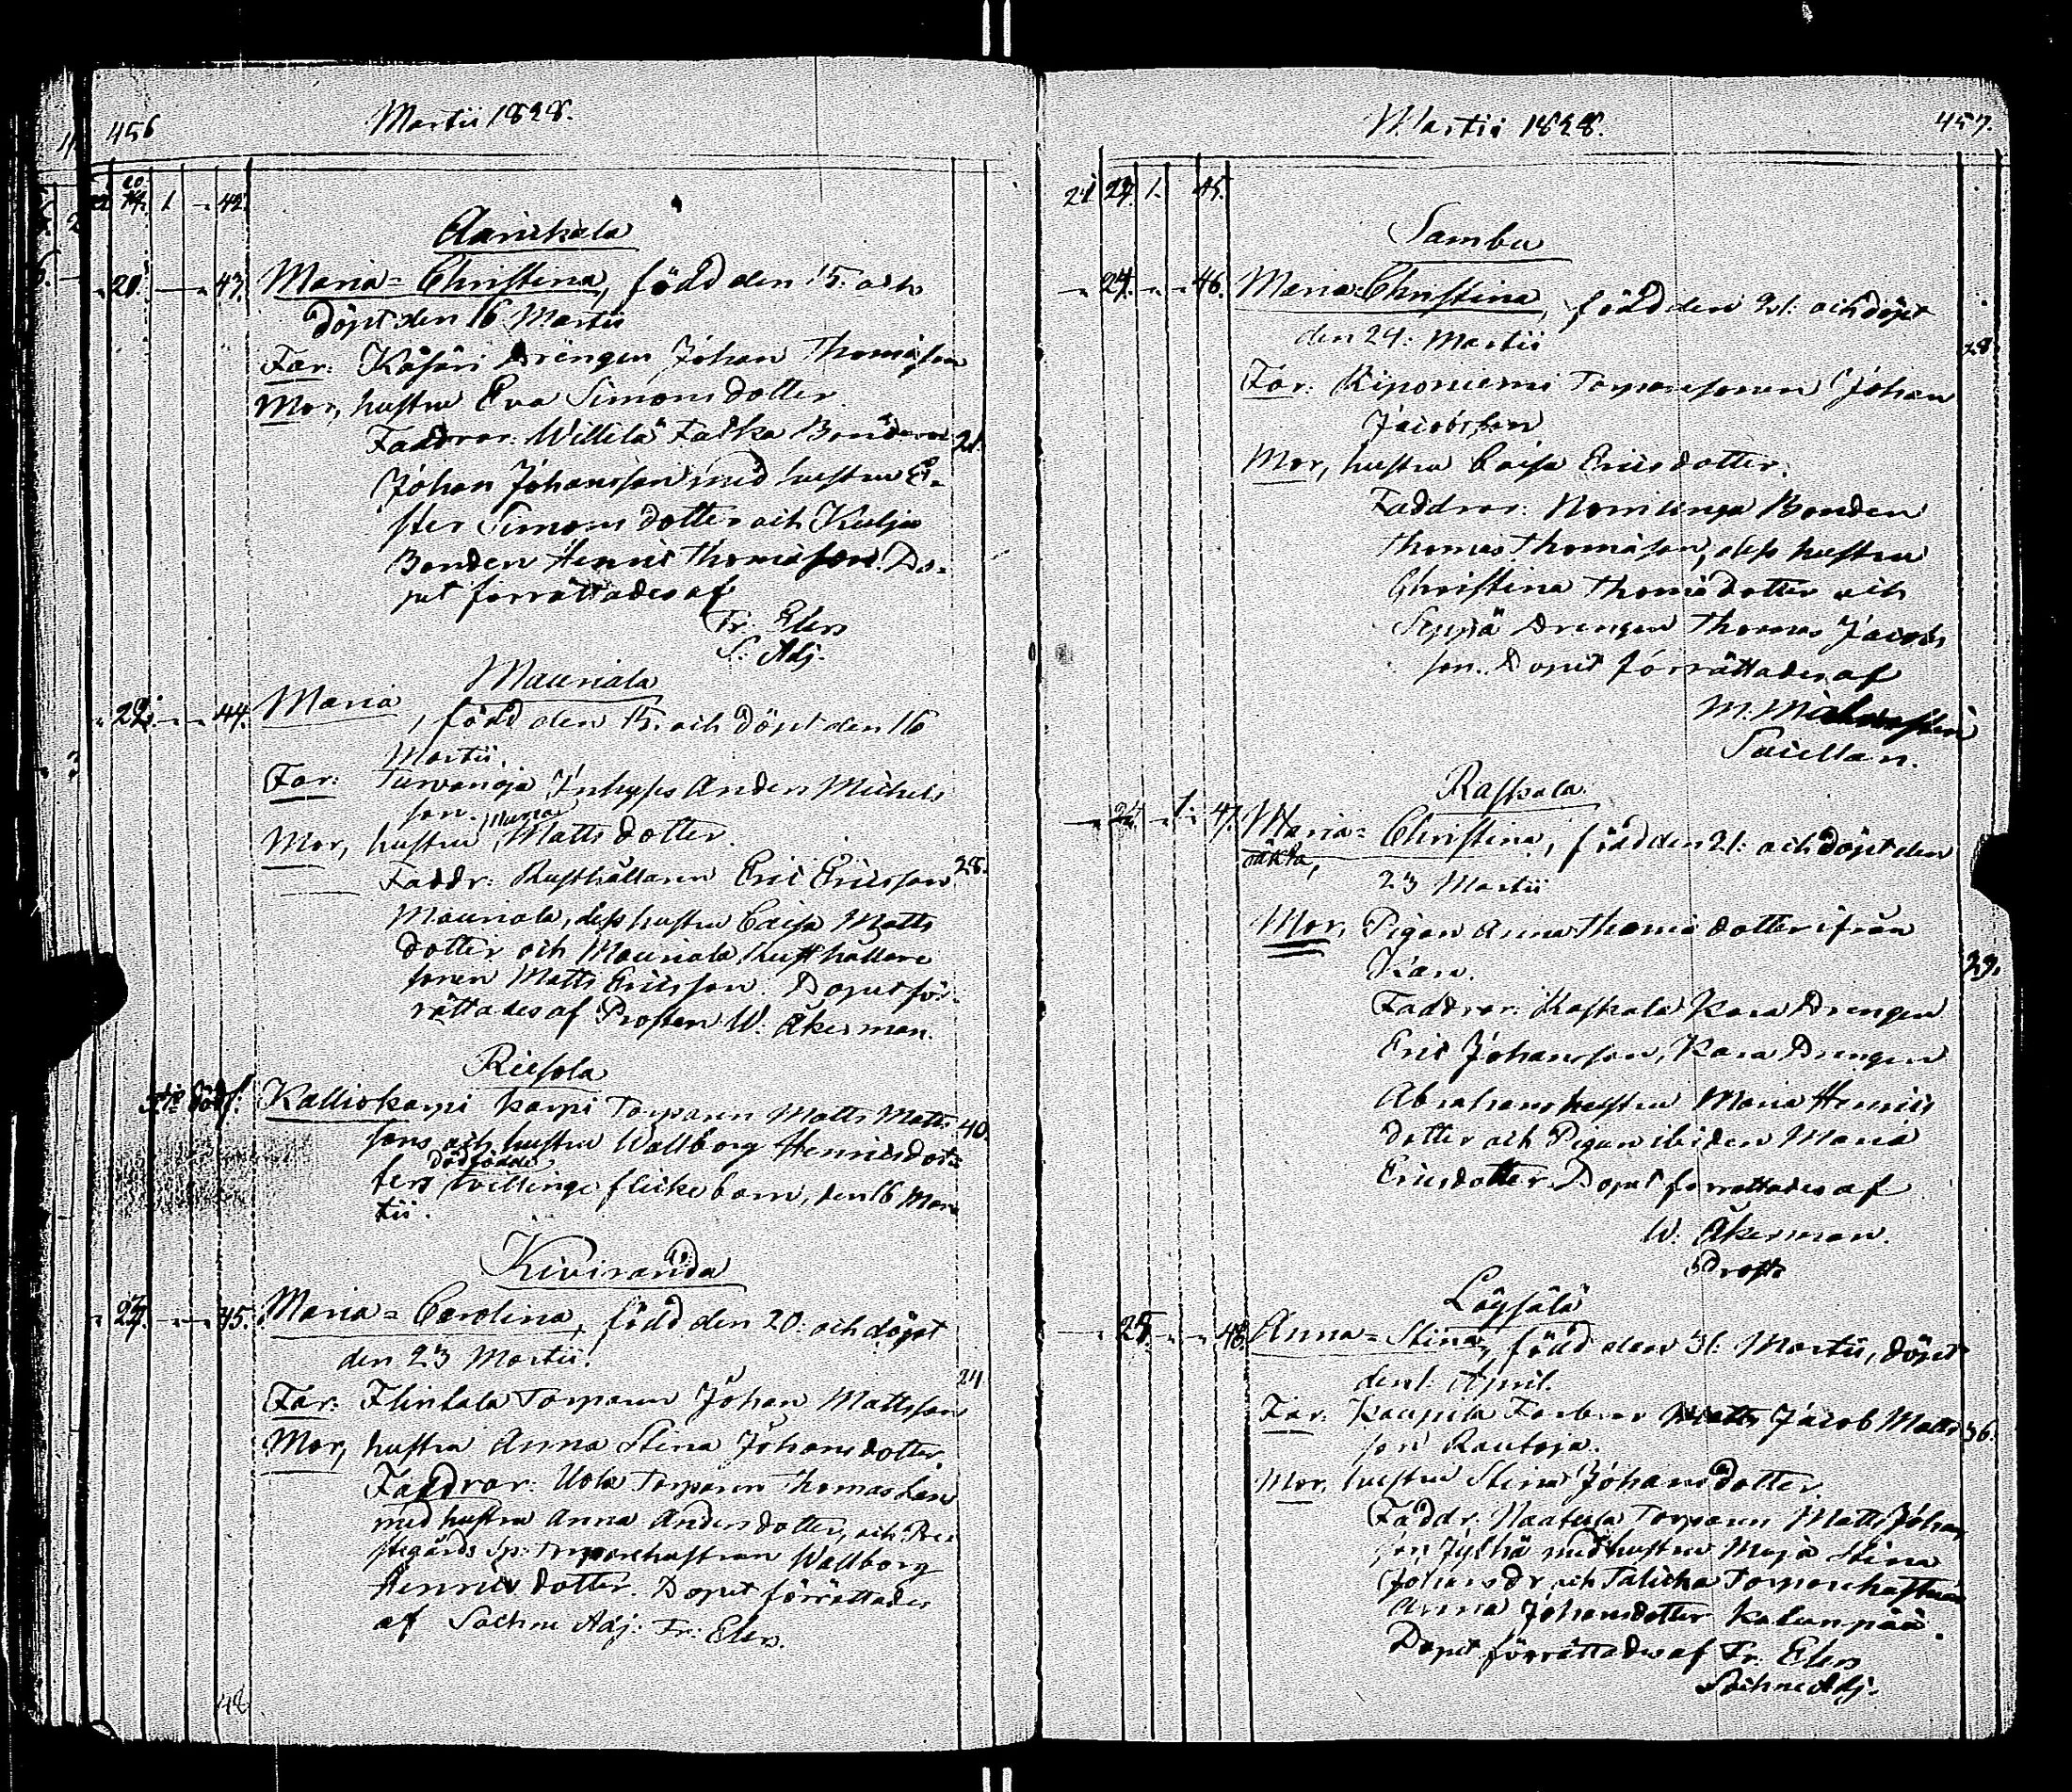 456
Martii 1828.
22. 14. 1. - 42.
Aarickala
" 20. - " 43. Maria = Christina, född den 15. och
döpt den 16 Martii
Far: Drängen Johan Thomasson
Mor, hustru Eva Simonsdotter.
Faddrar: Willilä Bonden 21.
Johan Johansson med hustru E-
ster Simonsdotter och Kulju
Bonden Henric Thomasson. Do-
pet förrättades af
Fr: Elers
S: Adj.
Mauriala
" 22. - " 44. Maria, född den 15. och döpt den 16
Martii.
Far: Inhyses Anders Michels
son.
Maria
Mor, hustru Matts dotter.
Faddr: Rusthållaren Eric Ericsson 28.
Mauriala, dess hustru Caisa Matts
dotter och Mauriala Rusthållare
sonen Matts Ericsson. Dopet för-
rättades af Prosten W. Åkerman.
Riesola
Kalliokorpi Torparen Matts Matts 40.
sons och hustru Wallborg Henricsdot-
dödfödde
ters tvillinge flicke barn, den 16 Mar-
tii.
Kiviranda
" 24. - " 45. Maria = Carolina, född den 20. och döpt
den 23 Martii.
24
Far: Flinkala Torparen Johan Mattsson
Mor, hustru Anna Stina Johansdotter.
Faddrar: Uola Torparen Thomas
med hustru Anna Andersdotter, och Pre-
stegårds Sp: Torparehustrun Wallborg
Henrics dotter. Dopet förrättades
af Sockne Adj: Fr: Elers.
48
Martii 1828.
457.
21 24. 1. 45.
Sambu
" 24. " " 46. Maria Christina, född den 21. och döpt
den 24. Martii
28.
Far: Riponiemi Torparesonen Johan
Jacobsson
Mor, hustru Caisa Ericsdotter.
Faddrar: Bonden
Thomas Thomasson, dess hustru
Christina Thomædotter och
Seppä Drengen Thomas Jacobs
son. Dopet förrättades af
M:
Sacellan.
Raskala
" 24. " 1. 47. Maria = Christina, född den 21. och döpt den
oäkta,
23 Martii
Mor, Pigan Anna Thomædotter ifrån
29.
Faddrar: Raskala Kara Drengen
Eric Johansson, Kara Drengen
Abrahams hustru Maria Henrics
dotter och Pigan ibidem Maria
Ericsdotter. Dopet förrättades af
W: Åkerman.
Prost
Löysälä
" 25. " " 48. Anna = Stina, född den 31. Martii, döpt
den 1. April.
Far: Kaupila Jacob Matts 36.
son Rautoja.
Mor, hustru Stina Johansdotter.
Faddr. Torparen Matts Johans
son Jylhä med hustru Maja Stina
Johansdr och Talicka Torparehustrun
Anna Johansdotter
Dopet förrättades af Fr: Elers
Sockne Adj.